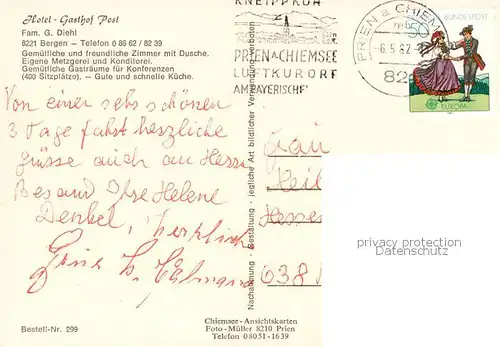 Hotel - Gasthof Post
Fam. G. Diehl
8221 Bergen — Telefon 0 86 62 / 82 39
Gemütliche und freundliche Zimmer mit Dusche.
Eigene Metzgerei und Konditorei.
Gemütliche Gasträume für Konferenzen
(400 Sitzplätze). — Gute und schnelle Küche.
Von einer sehr schönen
3 Tage fahrt herzliche
Grüsse auch an Herrn
Ilse Helene
herzlich
Bestell-Nr. 299
Nachahmung - Gestaltung - jegliche Art bildlicher Verwendung verboten
Chiemsee-Ansichtskarten
Foto-Müller 8210 Prien
Telefon 0 80 51 - 16 39
KNEIPPKUR
PRIEN A. CHIEMSEE
LUFTKURORT
AM BAYERISCHE
PRIEN a CHIEM
-6.5.82
82
50
BUNDESPOST
EUROPA
638
privacy protection
Datenschutz